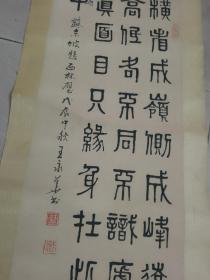 橫看成嶺側成峰遠
高低各不同不識廬
眞面目只緣身在此
中
蘇東坡題西林壁戊辰中秋王